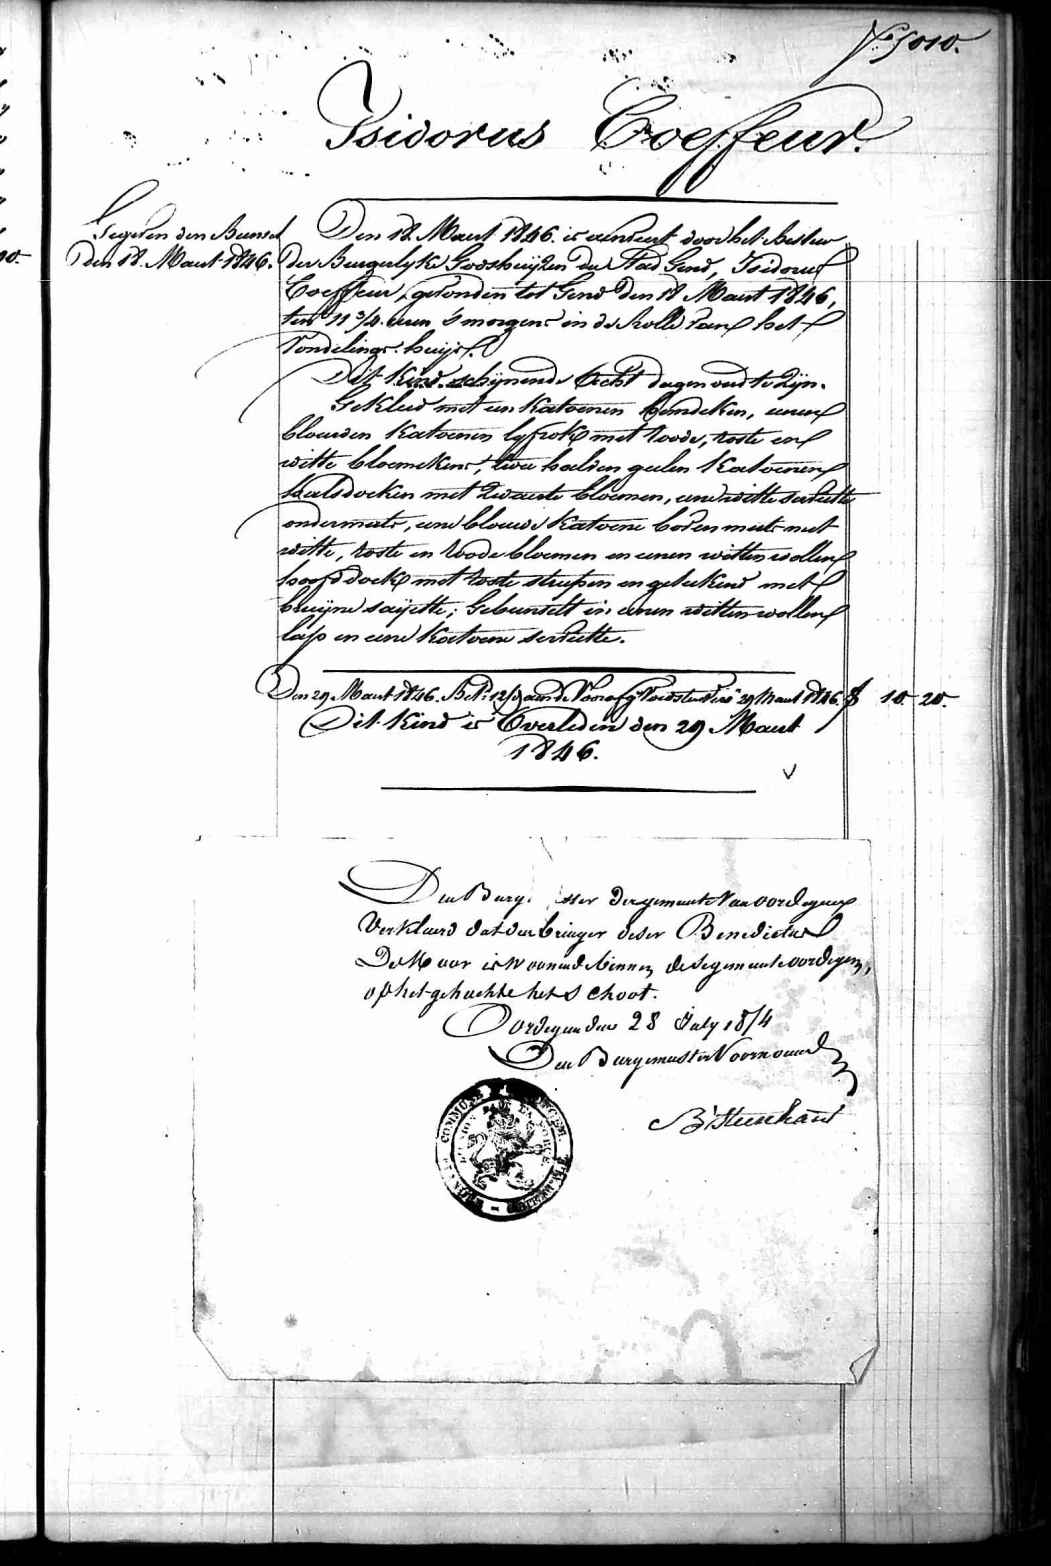 N.º 5010.
Isidorus Coeffeur.
Gegeven den Bunsel
den 18. Maart 1846.
Den 18. Maart 1846. is aenveert door het bestier
der Burgerlyke Godshuijzen der Stad Gend, Isidorus
Coeffeur, gevonden tot Gend den 18 Maart 1846,
ten 11 3/4. uren 's morgens in de Rolle van het
Vondelings-huijs.
Dit Kind schijnende Acht dagen oud te Zijn.
Gekleed met een Katoenen hemdeken, eenen
blauwen Katoenen lyfrok met roode, roste en
witte bloemekens, twee halven geelen Katoenen
halsdoeken met Zwarte bloemen, eene witte serviette
ondermuts, eene blauwe Katoene bovenmuts met
witte, roste en roode bloemen en eenen witten wollen
hoofddoek met roste streepen en geteekend met
bruijne saijette; Gebunselt in eenen witten wollen
lap en eene Katoene serviette.
Den 29 Maart 1846. aan de 29 Maart 1846. 10. 20.
Dit Kind is Overleden den 29 Maart
1846.
Den Burg ster der gemeente Van vordegem
Verklaerd dat den bringer deser Benedictus
De Moor is Woonende binnen dese gemeente vordegem,
op het gehuchte het Schoot.
Vordegem den 28 July 1874
Den Burgemeester Voornoemd
COMMUNE